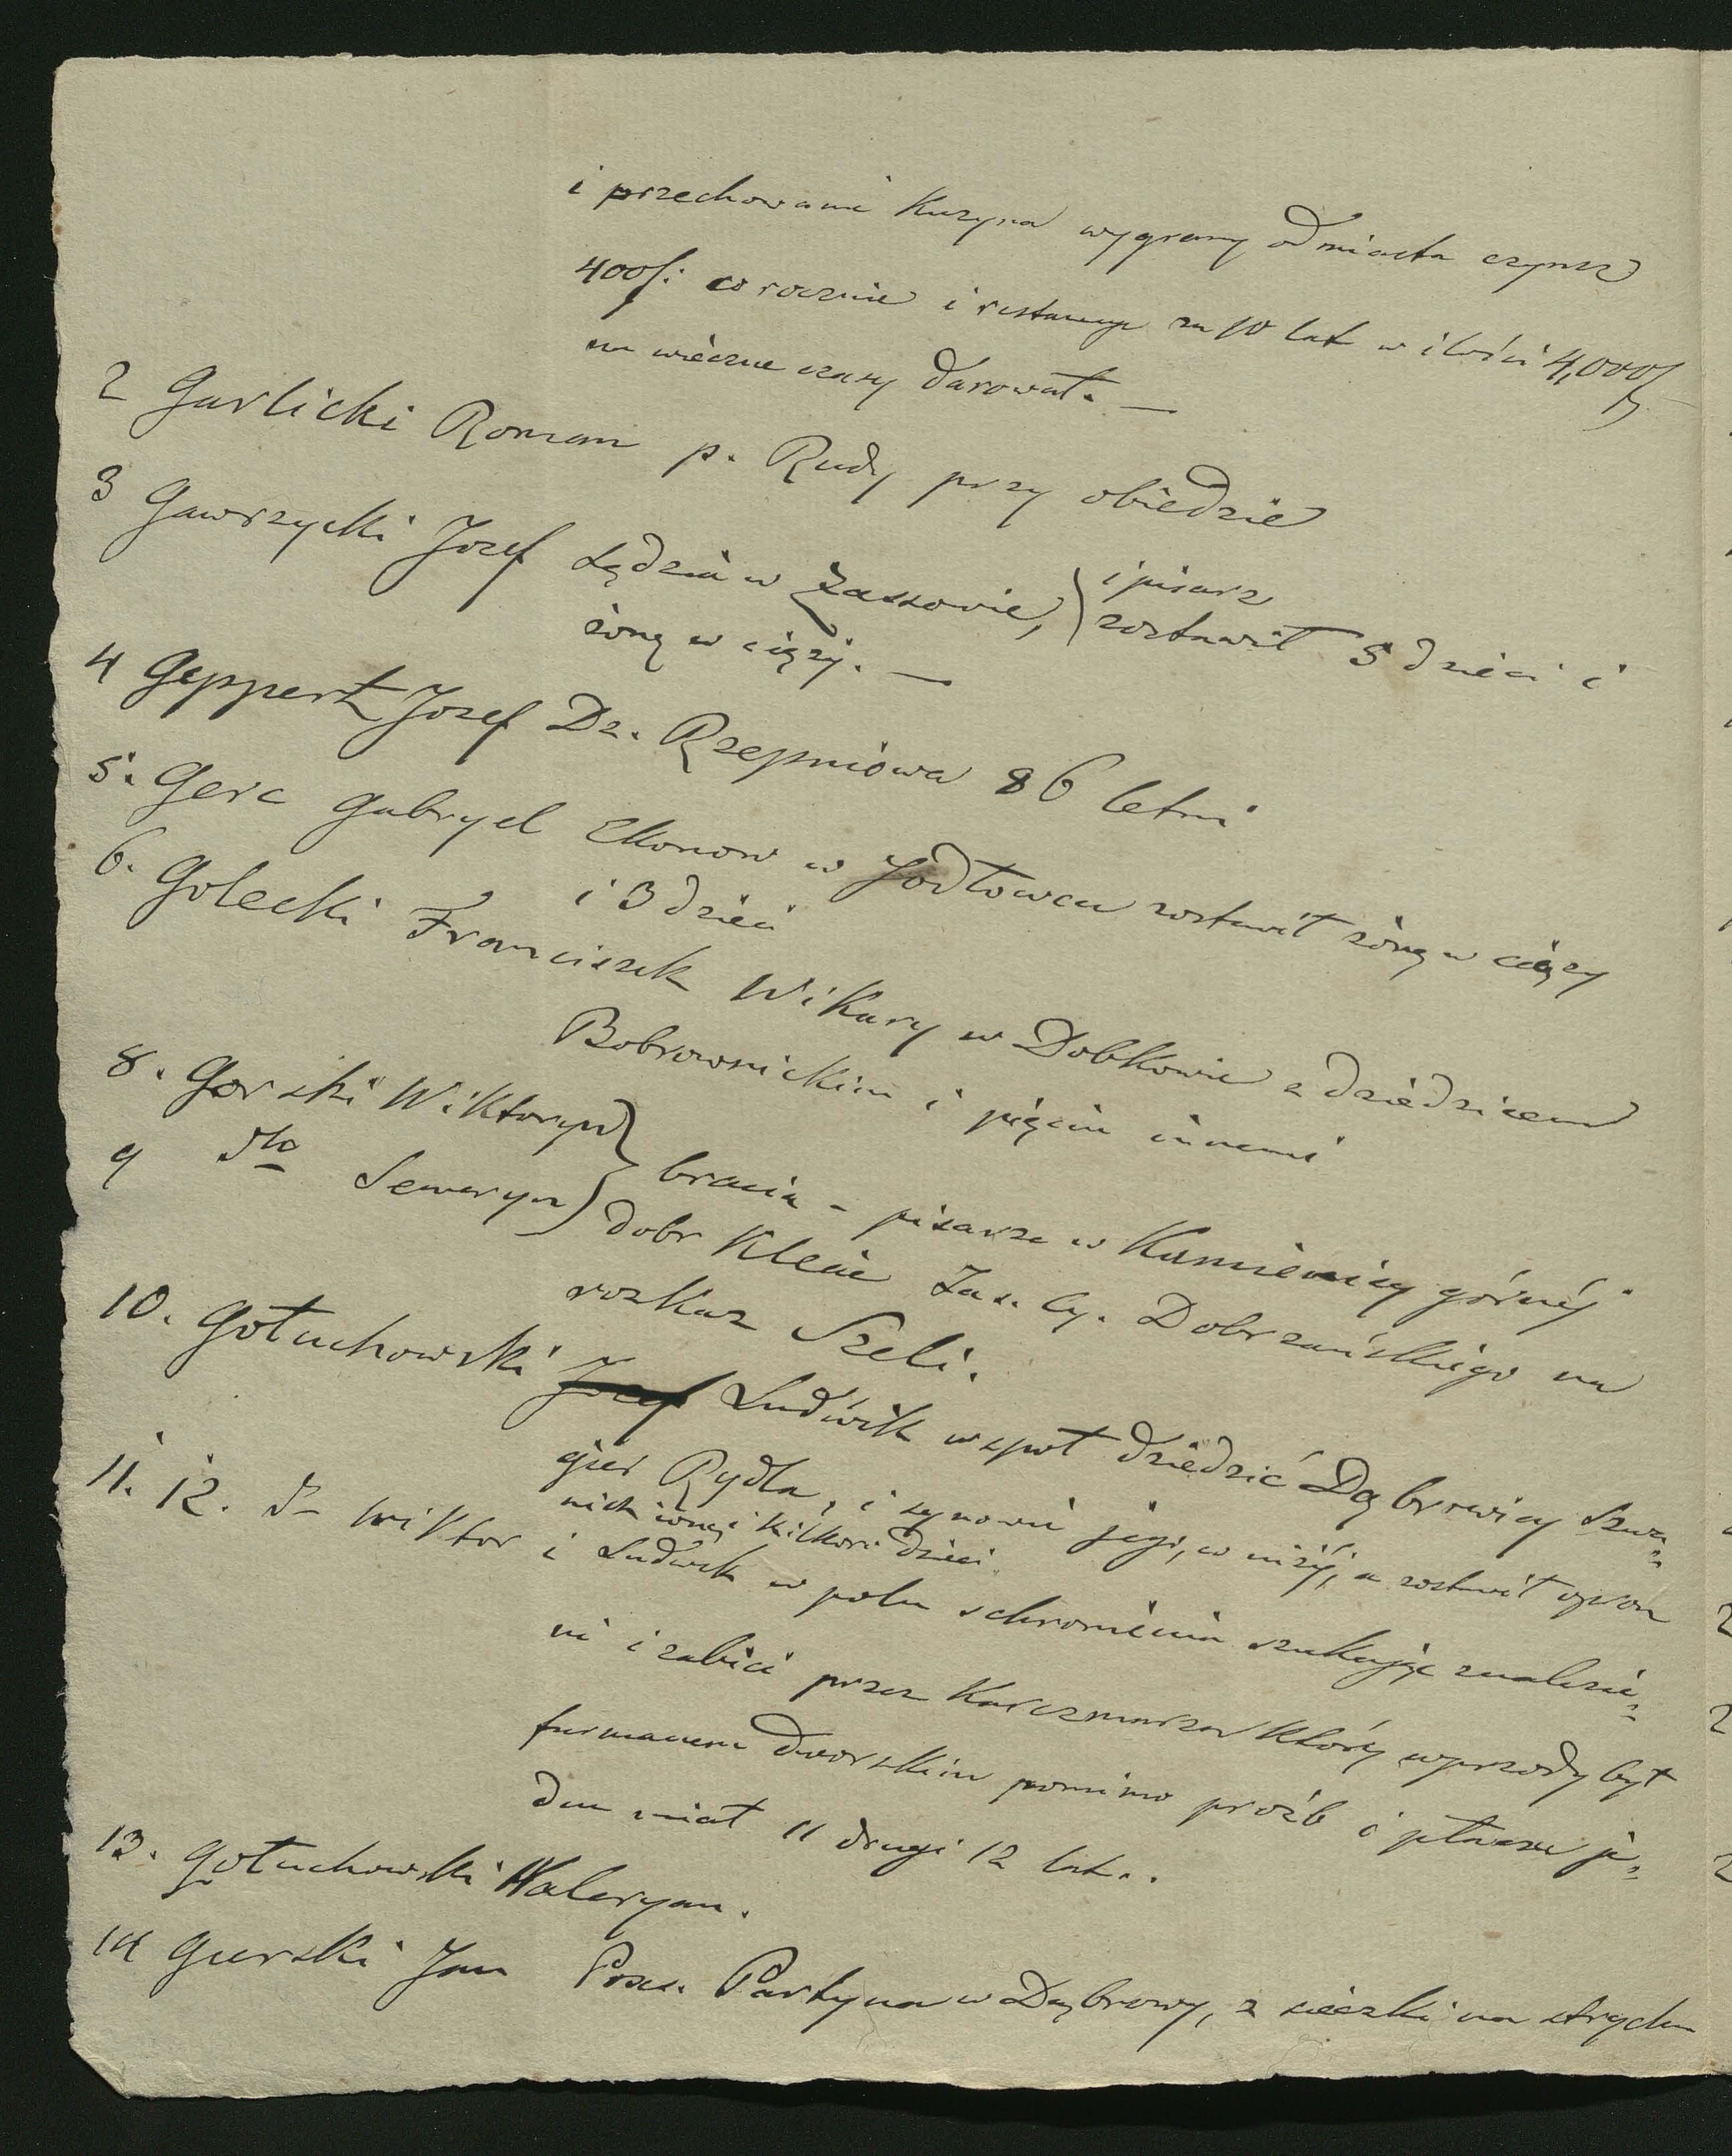 i przechowanie Kuzyna wygrany od miasta czynsz
400f: co rocznie i restancye za 10 lat w ilości 4,000f
na wieczne czasy darował. —
2 Garlicki Roman p. Rudy przy obiedzie
3 Gawrzycki Jozef Sędzia w Zassowie, i pisarz
zostawił 5 dzieci i
żonę w ciąży. —
4 Geppert Jozef Dz. Rzepniowa 86 letni
5. Gerc Gabryel Ekonom w Jodłowcu zostawił żonę w ciąży
i 3 dzieci
6. Golecki Franciszek Wikary w Dobkowie z dziedzicem
Bobrownickim i pięciu innemi
8. Gorski Wiktoryn
9 dto Seweryn
bracia - pisarze w Kamienicy górnéj
dobr Klecie Zas. Cy. Dobrzańskiego na
rozkaz Szeli.
10. Gołuchowski Jozef Ludwik wspoł dziedzić Dąbrowicy szwa-
gier Rydla, i synowie jego, co niżéj, a zostawił oprocz
nich żonę i kilkoro dzieci
11. 12. d- Wiktor i Ludwik w polu schronienia szukając znalezie-
ni i zabici przez Karczmarza który wprzody był
furmanem dworskim pomimo proźb i płaczu je-
den miał 11 drugi 12 lat..
13. Gołuchowski Waleryan.
14 Gurski Jan Poss. Partynia w Dąbrowy, z cieczki na strychu